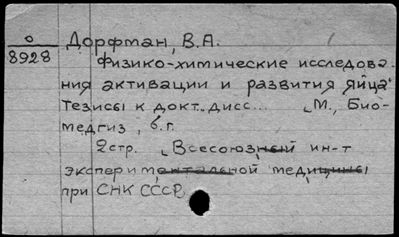 О
8928
Дорфман, В.А.
Физико-химические исследова-
ния активации и развития яйца
Тезисы к докт. дисс... М., Био-
медгиз, б.г.
2стр. Всесоюзный ин-т
эксперитментальной медицины
при СНК СССР